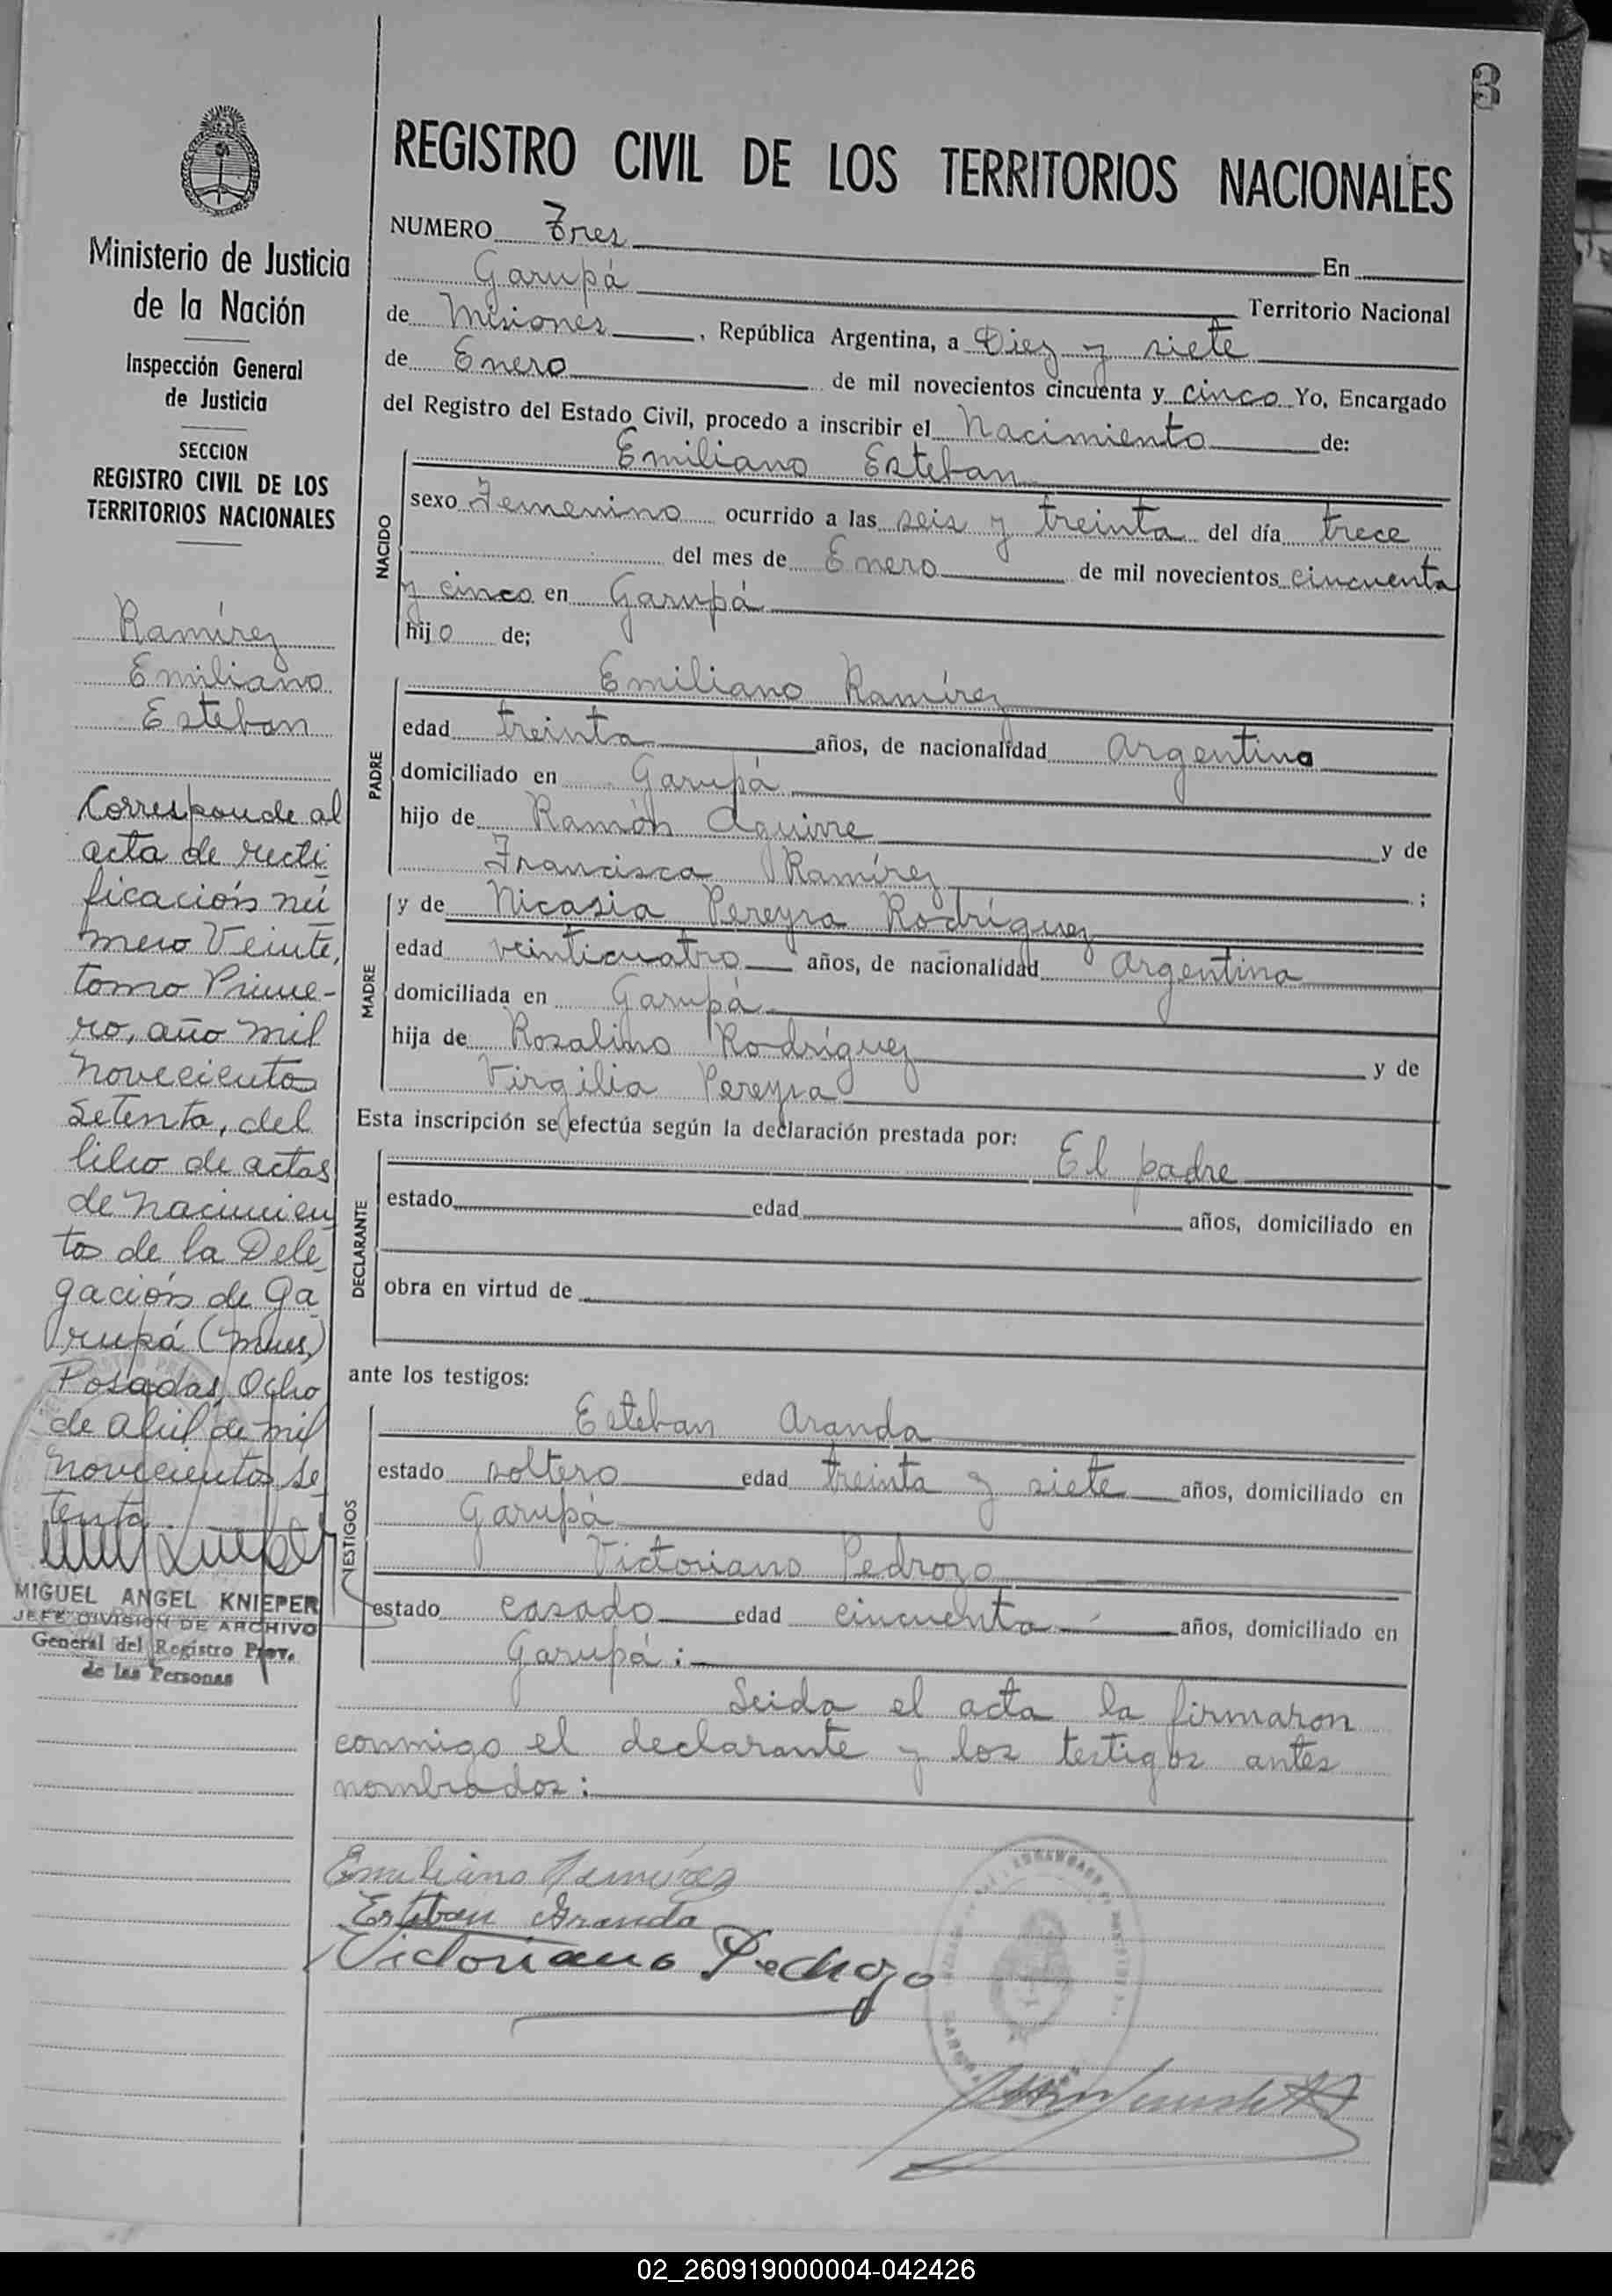 3
REGISTRO CIVIL DE LOS TERRITORIOS NACIONALES
NUMERO Tres En
Garupá Territorio Nacional
de Misiones, República Argentina, a Diez y siete
de Enero de mil novecientos cincuenta y cinco Yo, Encargado
del Registro del Estado Civil, procedo a inscribir el Nacimiento de:
NACIDO
Emiliano Esteban
sexo Femenino ocurrido a las seis y treinta del día trece
del mes de Enero de mil novecientos cincuenta
y cinco en Garupá
hijo de;
PADRE
Emiliano Ramírez
edad treinta años, de nacionalidad argentino
domiciliado en Garupá
hijo de Ramón Aguirre y de
Francisca Ramírez ;
MADRE
y de Nicasia Pereyra Rodríguez
edad veinticuatro años, de nacionalidad argentina
domiciliada en Garupá
hija de Rosalino Rodríguez y de
Virgilia Pereyra
Esta inscripción se efectúa según la declaración prestada por: El padre
DECLARANTE
estado edad años, domiciliado en
obra en virtud de
ante los testigos:
TESTIGOS
Esteban Aranda
estado soltero edad treinta y siete años, domiciliado en
Garupá
Victoriano Pedrozo
estado casado edad cincuenta años, domiciliado en
Garupá:
Leida el acta la firmaron
conmigo el declarante y los testigos antes
nombrados:
Emiliano Ramírez
Esteban Aranda
Victoriano Pedrozo
Ministerio de Justicia
de la Nación
Inspección General
de Justicia
SECCION
REGISTRO CIVIL DE LOS
TERRITORIOS NACIONALES
Ramírez
Emiliano
Esteban
Corresponde al
acta de recti
ficación nú
mero Veinte,
tomo Prime-
ro, año mil
novecientos
setenta, del
libro de actas
de nacimien
tos de la Dele
gación de Ga
rupá (Mnes)
Posadas, Ocho
de abril de mil
novecientos se
tenta.
MIGUEL ANGEL KNIEPER
JEFE DIVISION DE ARCHIVO
General del Registro Prov.
de las Personas
02_260919000004-042426